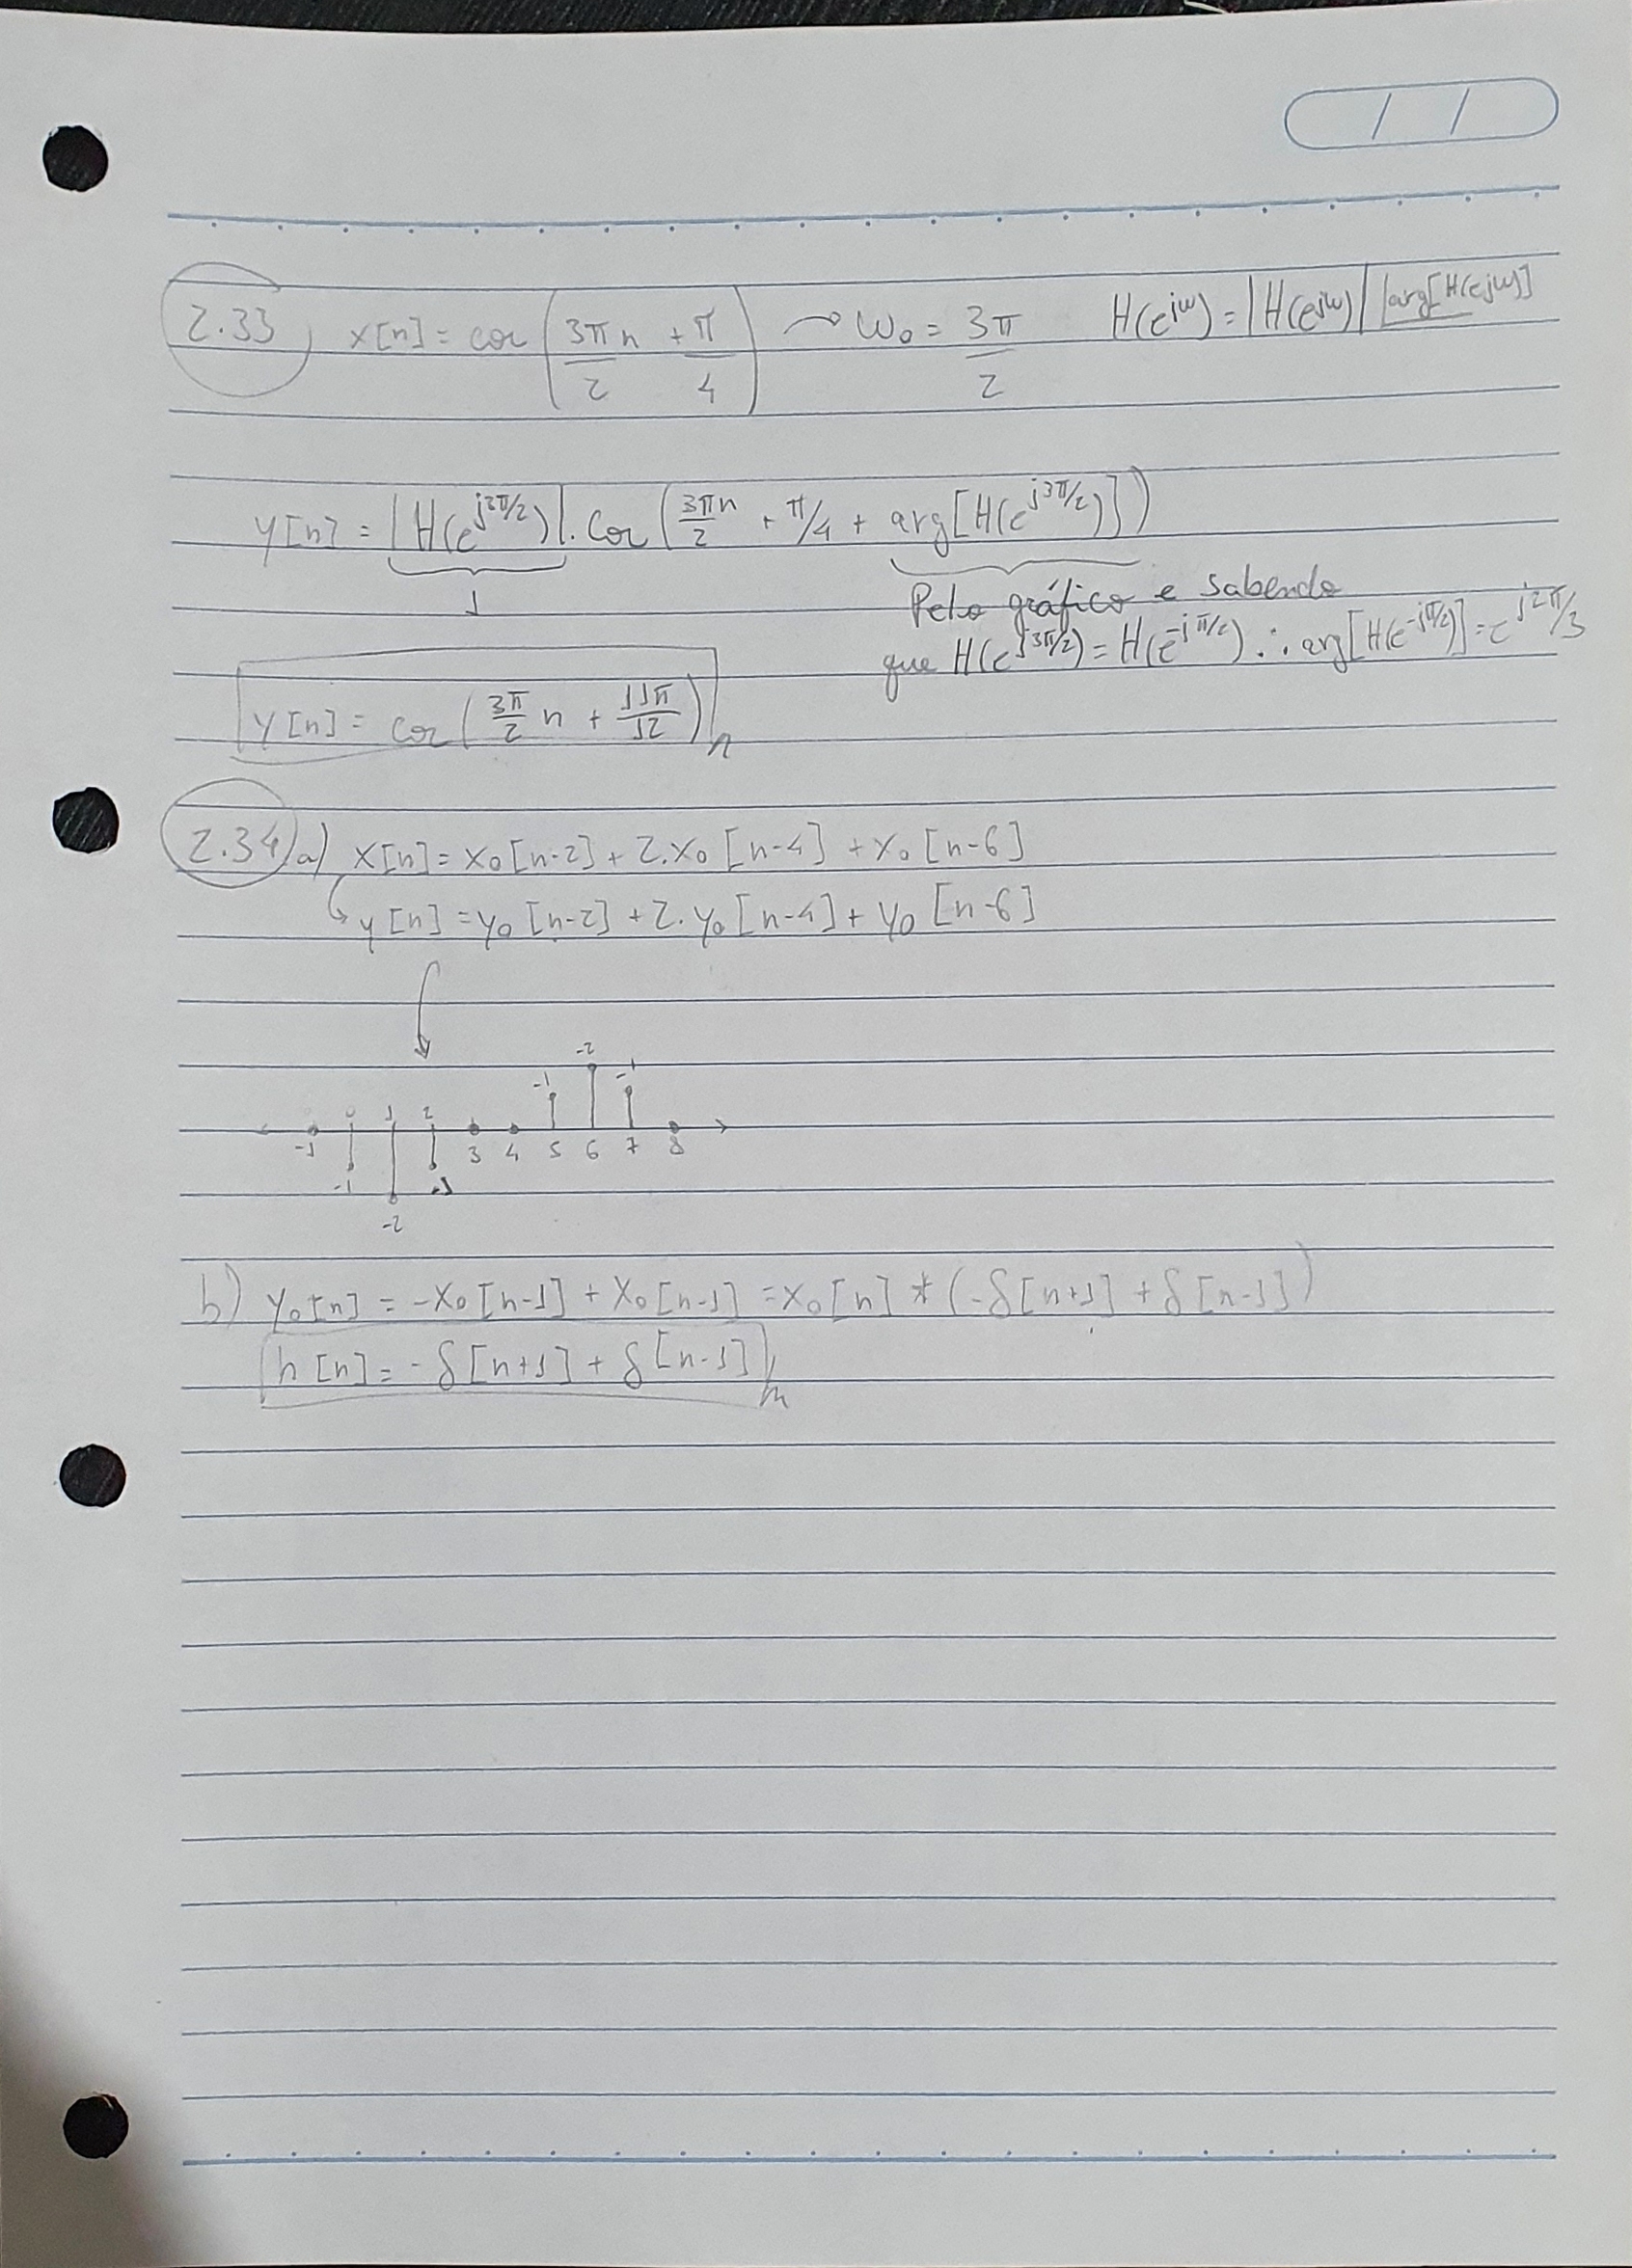 2.33) x[n] = cos(3πn/2 + π/4) → ω₀ = 3π/2 H(e^{jω}) = |H(e^{jω})| ∠arg[H(e^{jω})]
y[n] = |H(e^{j3π/2})| . cos(3πn/2 + π/4 + arg[H(e^{j3π/2})])
1
Pelo gráfico e sabendo
que H(e^{j3π/2}) = H(e^{-jπ/2}) ∴ arg[H(e^{-jπ/2})] = e^{j2π/3}
y[n] = cos(3π/2 n + 11π/12)
2.34) a) x[n] = x₀[n-2] + 2.x₀[n-4] + x₀[n-6]
y[n] = y₀[n-2] + 2.y₀[n-4] + y₀[n-6]
-1 -2 -1
-1 0 1 2 3 4 5 6 7 8
-1 -2 -1
b) y₀[n] = -x₀[n-1] + x₀[n-1] = x₀[n] * (-δ[n+1] + δ[n-1])
h[n] = -δ[n+1] + δ[n-1]